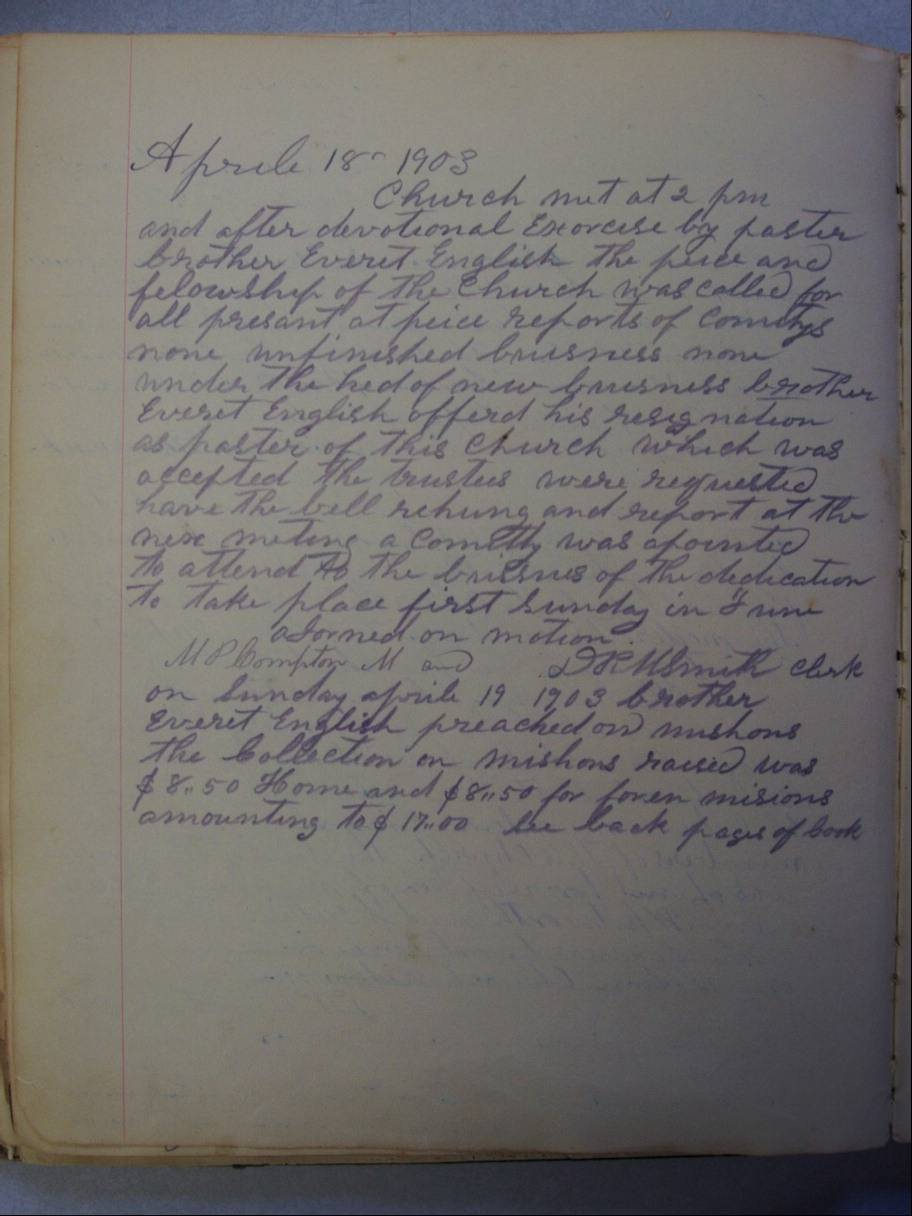 Aprile 18 1903
Church met at 2 pm
and after devotional Exorcise by paster
brother Everet English the peice and
felowship of the Church was called for
all presant at peice reports of Comitys
none unfinished buisness none
under the hed of new buisness brother
Everet English offerd his resignation
as paster of this Church which was
accepted the trustees were requested
have the bell rehung and report at the
nex meting a Comitty was apointed
to attend to the buissnes of the dedication
to take place first Sunday in June
adorned on motion
M P Compton M and Smith clerk
on Sunday aprile 19 1903 brother
Everet English preached on mishons
the Collection on mishons raised was
$8,,50 Home and $8,,50 for foren misions
amounting to $17,,00 See back pages of book